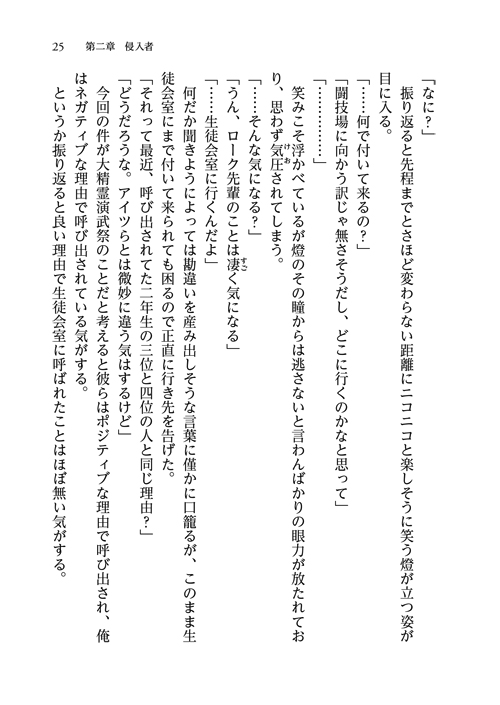 25　第二章　侵入者
「なに？」
　振り返ると先程までとさほど変わらない距離にニコニコと楽しそうに笑う燈が立つ姿が
目に入る。
「……何で付いて来るの？」
「闘技場に向かう訳じゃ無さそうだし、どこに行くのかなと思って」
「……………」
　笑みこそ浮かべているが燈のその瞳からは逃さないと言わんばかりの眼力が放たれてお
り、思わず気圧されてしまう。
けお
「……そんな気になる？」
「うん、ローク先輩のことは凄く気になる」
すご
「……生徒会室に行くんだよ」
　何だか聞きようによっては勘違いを産み出しそうな言葉に僅かに口籠るが、このまま生
徒会室にまで付いて来られても困るので正直に行き先を告げた。
「それって最近、呼び出されてた二年生の三位と四位の人と同じ理由？」
「どうだろうな。アイツらとは微妙に違う気はするけど」
　今回の件が大精霊演武祭のことだと考えると彼らはポジティブな理由で呼び出され、俺
はネガティブな理由で呼び出されている気がする。
　というか振り返ると良い理由で生徒会室に呼ばれたことはほぼ無い気がする。